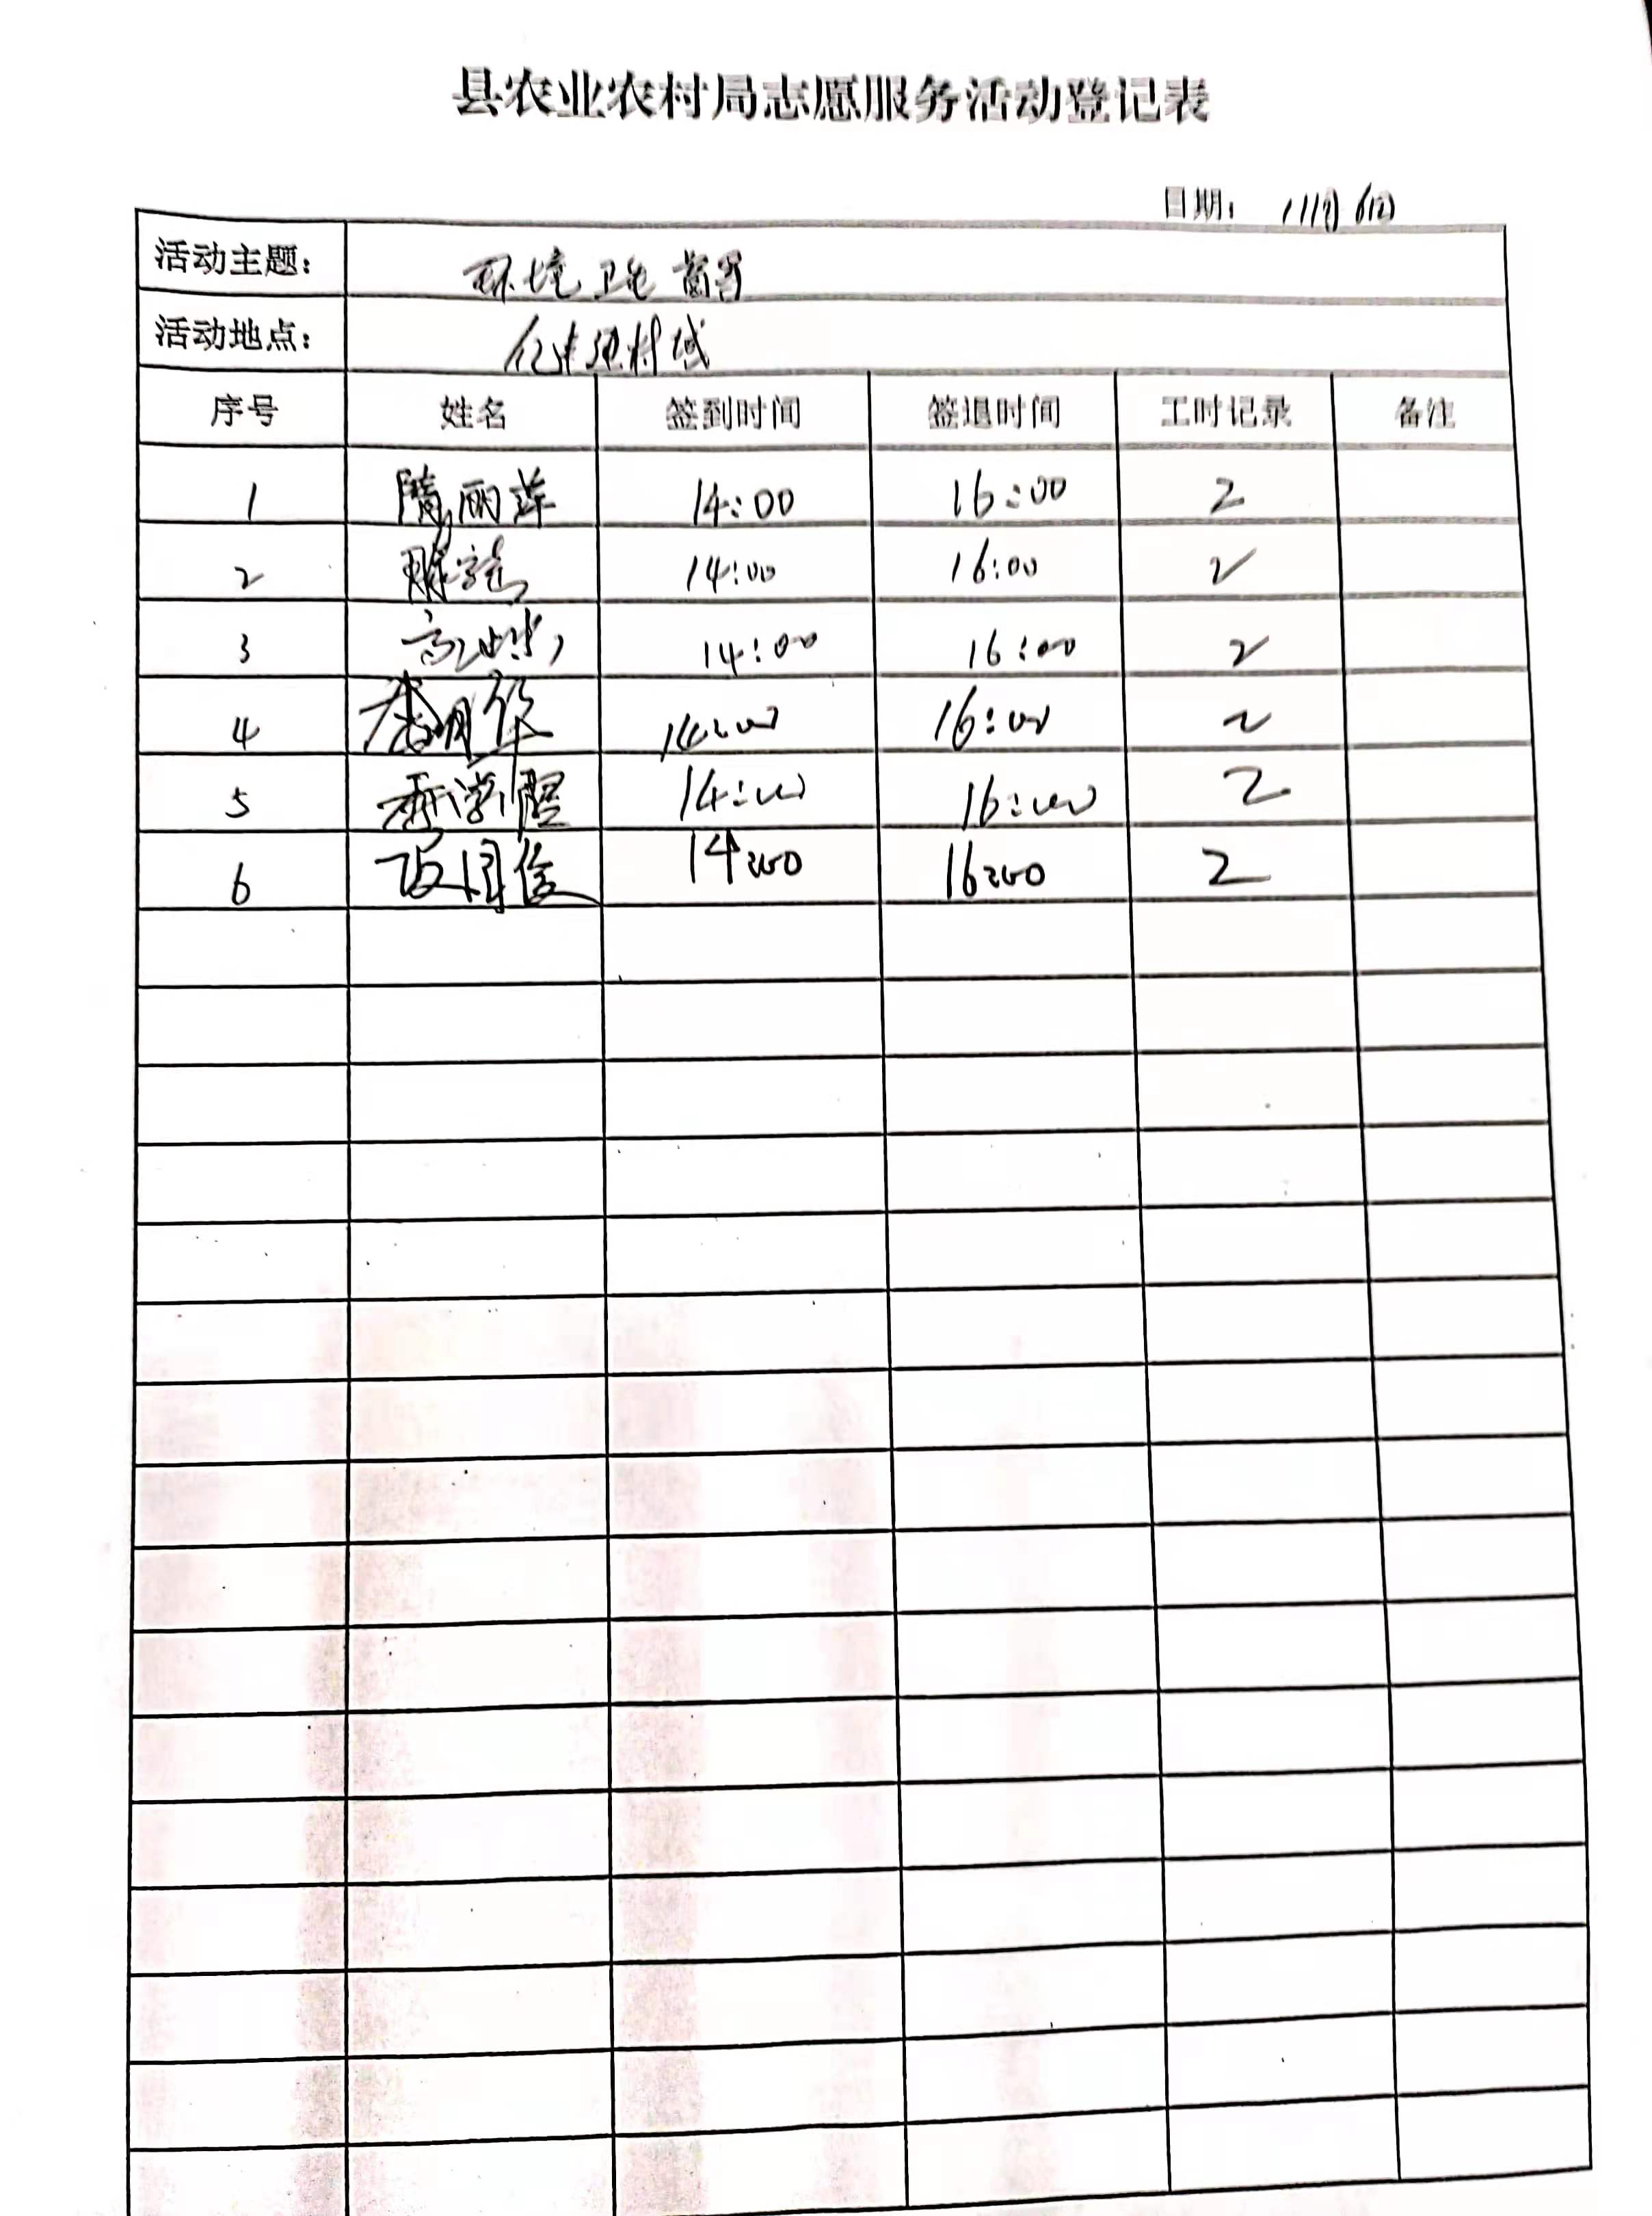 县农业农村局志愿服务活动登记表
日期: 11月6日
活动主题: 环境卫生
活动地点: 村域
序号 姓名 签到时间 签退时间 工时记录 备注
1 隋丽萍 14:00 16:00 2
2 14:00 16:00 2
3 14:00 16:00 2
4 14:00 16:00 2
5 14:00 16:00 2
6 14:00 16:00 2